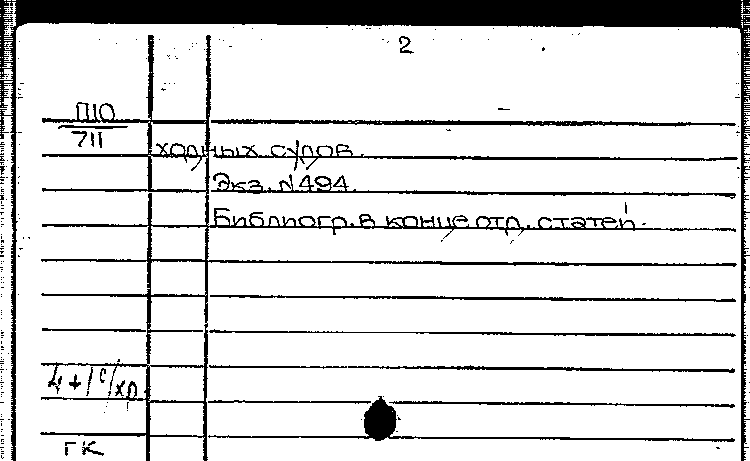 2
П10
711
ходных судов.
Экз. №494.
Библиогр. в конце отд. статей.
4+1 с/хр.
ГК